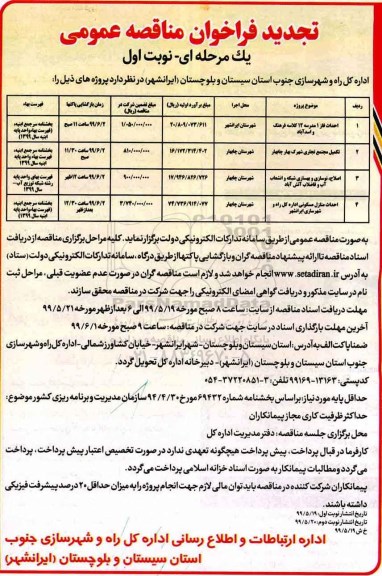 تجدید فراخوان مناقصه عمومی
یک مرحله ای- نوبت اول
اداره کل راه و شهرسازی جنوب استان سیستان و بلوچستان (ایرانشهر) در نظر دارد پروژه های ذیل را:
ردیف موضوع پروژه محل اجرا مبلغ برآورد اولیه (ریال) مبلغ تضمین شرکت در مناقصه (ریال) زمان بازگشایی پاکتها فهرست بهاء
۱ احداث فاز ۱ مدرسه ۱۲ کلاسه فرهنگ و اسدآباد شهرستان ایرانشهر ۲۰/۸۰۹/۰۷۳/۶۱۱ ۱/۰۵۰/۰۰۰/۰۰۰ ۹۹/۶/۲ ساعت ۱۱ صبح
۲ تکمیل مجتمع تجاری شهرک بهار چابهار شهرستان چابهار ۸۱۰/۰۰۰/۰۰۰ ۹۹/۶/۲ ساعت ۱۱/۳۰ صبح
۳ اصلاح، نوسازی و بهسازی شبکه و انشعاب آب و فاضلاب شهرستان چابهار ۹۰۰/۰۰۰/۰۰۰ ۹۹/۶/۲ ساعت ۱۲ ظهر
۴ احداث منازل مسکونی اداره کل راه و شهرسازی ایرانشهر شهرستان چابهار ۳/۷۴۰/۰۰۰/۰۰۰ ۹۹/۶/۲ ساعت ۱۲/۳۰ بعدازظهر
به صورت مناقصه عمومی از طریق سامانه تدارکات الکترونیکی دولت برگزار نماید. کلیه مراحل برگزاری مناقصه از دریافت
اسناد مناقصه تا ارائه پیشنهاد مناقصه گران و بازگشایی پاکتها از طریق درگاه، سامانه تدارکات الکترونیکی دولت (ستاد)
به آدرس www.setadiran.ir انجام خواهد شد و لازم است مناقصه گران در صورت عدم عضویت قبلی، مراحل ثبت
نام در سایت مذکور و دریافت گواهی امضای الکترونیکی را جهت شرکت در مناقصه محقق سازند.
مهلت دریافت اسناد مناقصه از سایت: ساعت ۸ صبح مورخه ۹۹/۵/۱۹ الی ۶ بعدازظهر مورخه ۹۹/۵/۲۱
آخرین مهلت بارگذاری اسناد در سایت جهت شرکت در مناقصه: ساعت ۹ صبح مورخه ۹۹/۶/۱
ضمنا پاکت الف به آدرس: استان سیستان و بلوچستان- شهر ایرانشهر- خیابان کشاورز شمالی- اداره کل راه و شهرسازی
جنوب استان سیستان و بلوچستان (ایرانشهر)- دبیرخانه اداره کل تحویل گردد.
کدپستی: ۱۳۱۶۳-۹۹۱۶۹ تلفن: ۳-۳۷۲۲۰۸۵۱-۰۵۴
حداقل پایه مورد نیاز: براساس بخشنامه شماره ۶۹۴۳۲ مورخ ۹۴/۴/۳۰ سازمان مدیریت و برنامه ریزی کشور موضوع:
حداکثر ظرفیت کاری مجاز پیمانکاران
محل برگزاری جلسه مناقصه: دفتر مدیریت اداره کل
کارفرما در قبال پرداخت، پیش پرداخت هیچگونه تعهدی ندارد در صورت تخصیص اعتبار پیش پرداخت، پرداخت
می گردد و مطالبات پیمانکار به صورت اسناد خزانه اسلامی پرداخت می گردد.
پیمانکاران شرکت کننده در مناقصه باید توان مالی لازم جهت انجام پروژه را به میزان حداقل ۲۰ درصد پیشرفت فیزیکی
داشته باشند.
تاریخ انتشار نوبت اول: ۹۹/۵/۱۹
تاریخ انتشار نوبت دوم: ۹۹/۵/۲۰
خ ش ۹۹/۵/۱۹
اداره ارتباطات و اطلاع رسانی اداره کل راه و شهرسازی جنوب
استان سیستان و بلوچستان (ایرانشهر)